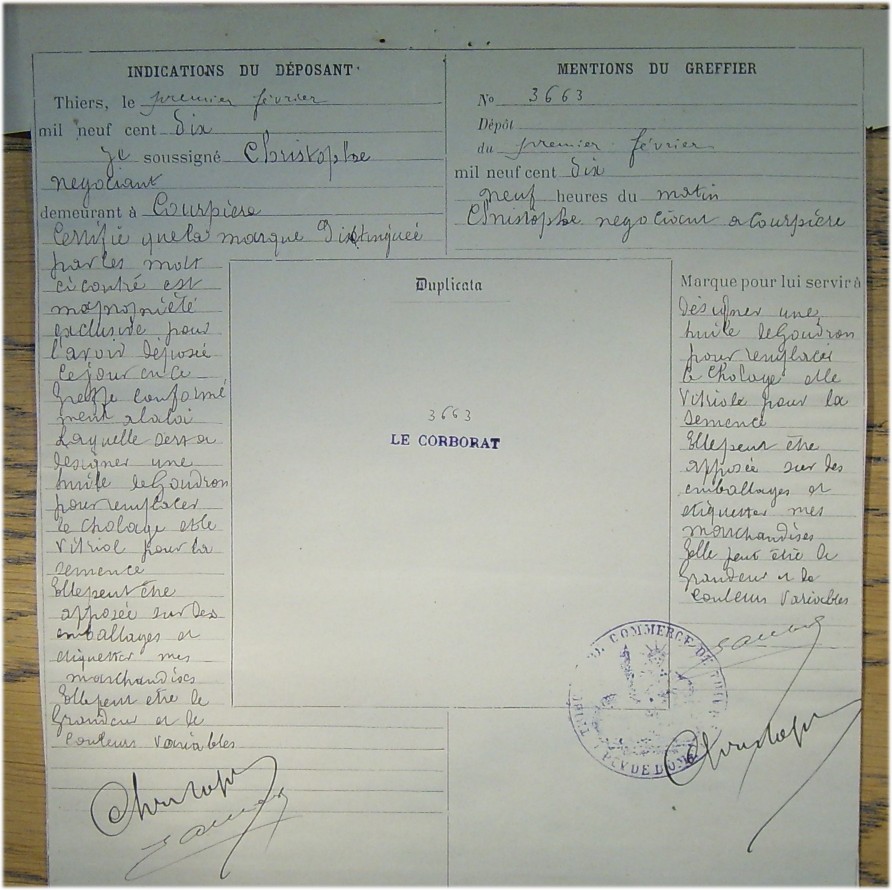 INDICATIONS DU DÉPOSANT
Thiers, le premier février
mil neuf cent dix
Je soussigné Christophe
negociant
demeurant à Courpière
Certifie que la marque Distinguée
par les mots
ci contre est
ma propriété
exclusive pour
l'avoir déposée
ce jour au ce
Greffe conformé
ment a la loi
Laquelle sera a
designer une
huile de Goudron
pour remplacer
le Cholage et le
Vitriol pour la
semence
Elle peut être
apposée sur des
emballages et
etiquetter mes
marchandises
Elle peut être de
Grandeur et de
Couleurs variables
Christophe
Duplicata
3663
LE CORBORAT
MENTIONS DU GREFFIER
No 3663
Dépôt
du premier février
mil neuf cent dix
neuf heures du matin
Christophe negociant a Courpière
Marque pour lui servir à
Désigner une
huile de Goudron
pour remplacer
le Cholage et le
Vitriole pour la
semence
Elle peut être
apposée sur des
emballages et
etiquetter mes
marchandises
Elle peut être de
Grandeur et de
Couleurs variables
COMMERCE DE
PUY DE DOME
Christophe